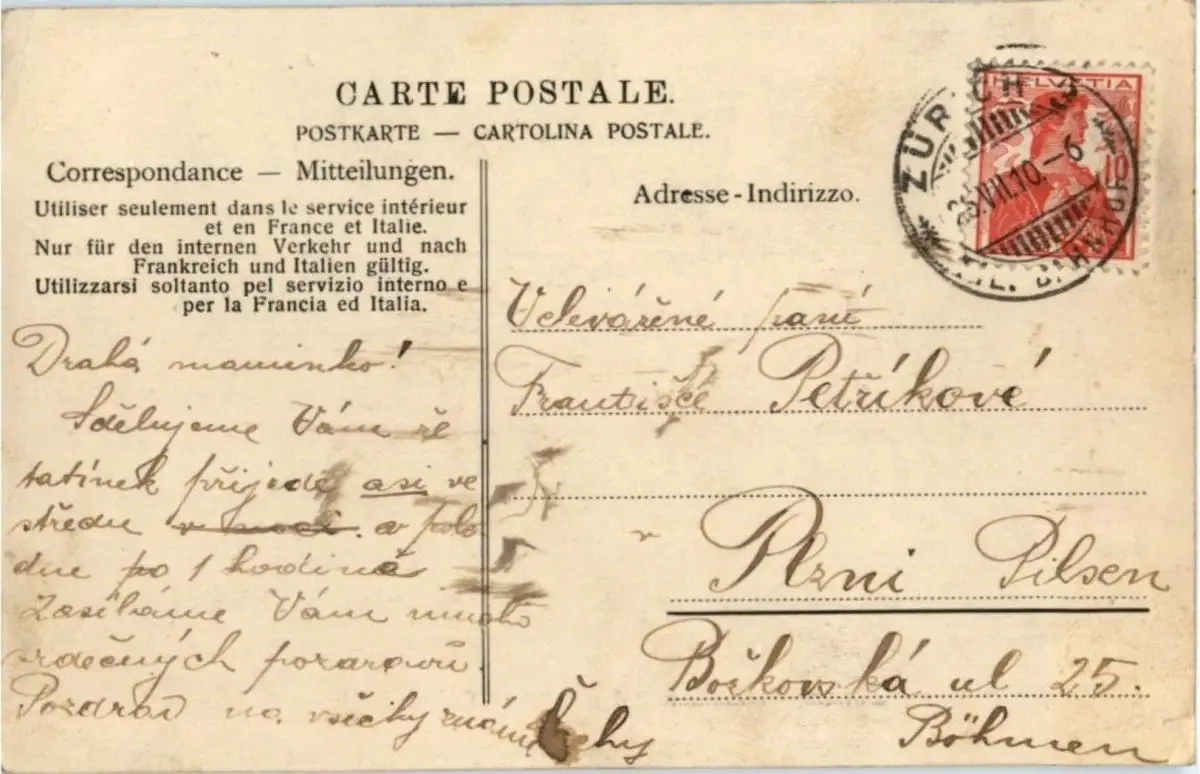 CARTE POSTALE.
POSTKARTE — CARTOLINA POSTALE.
Correspondance — Mitteilungen.
Utiliser seulement dans le service intérieur
et en France et Italie.
Nur für den internen Verkehr und nach
Frankreich und Italien gültig.
Utilizzarsi soltanto pel servizio interno e
per la Francia ed Italia.
Drahá maminko!
Sdělujeme Vám že
tatínek přijede asi ve
středu v noci a polo
dne po 1 hodině
Zasíláme Vám mnoho
srdečných pozdravů.
Pozdrav na všecky známé
Adresse - Indirizzo.
HELVETIA
10
ZÜRICH
25.VII.10.–6
Velevážené paní
Františce Petříkové
Plzni Pilsen
Božkovská ul 25.
Čechy
Böhmen